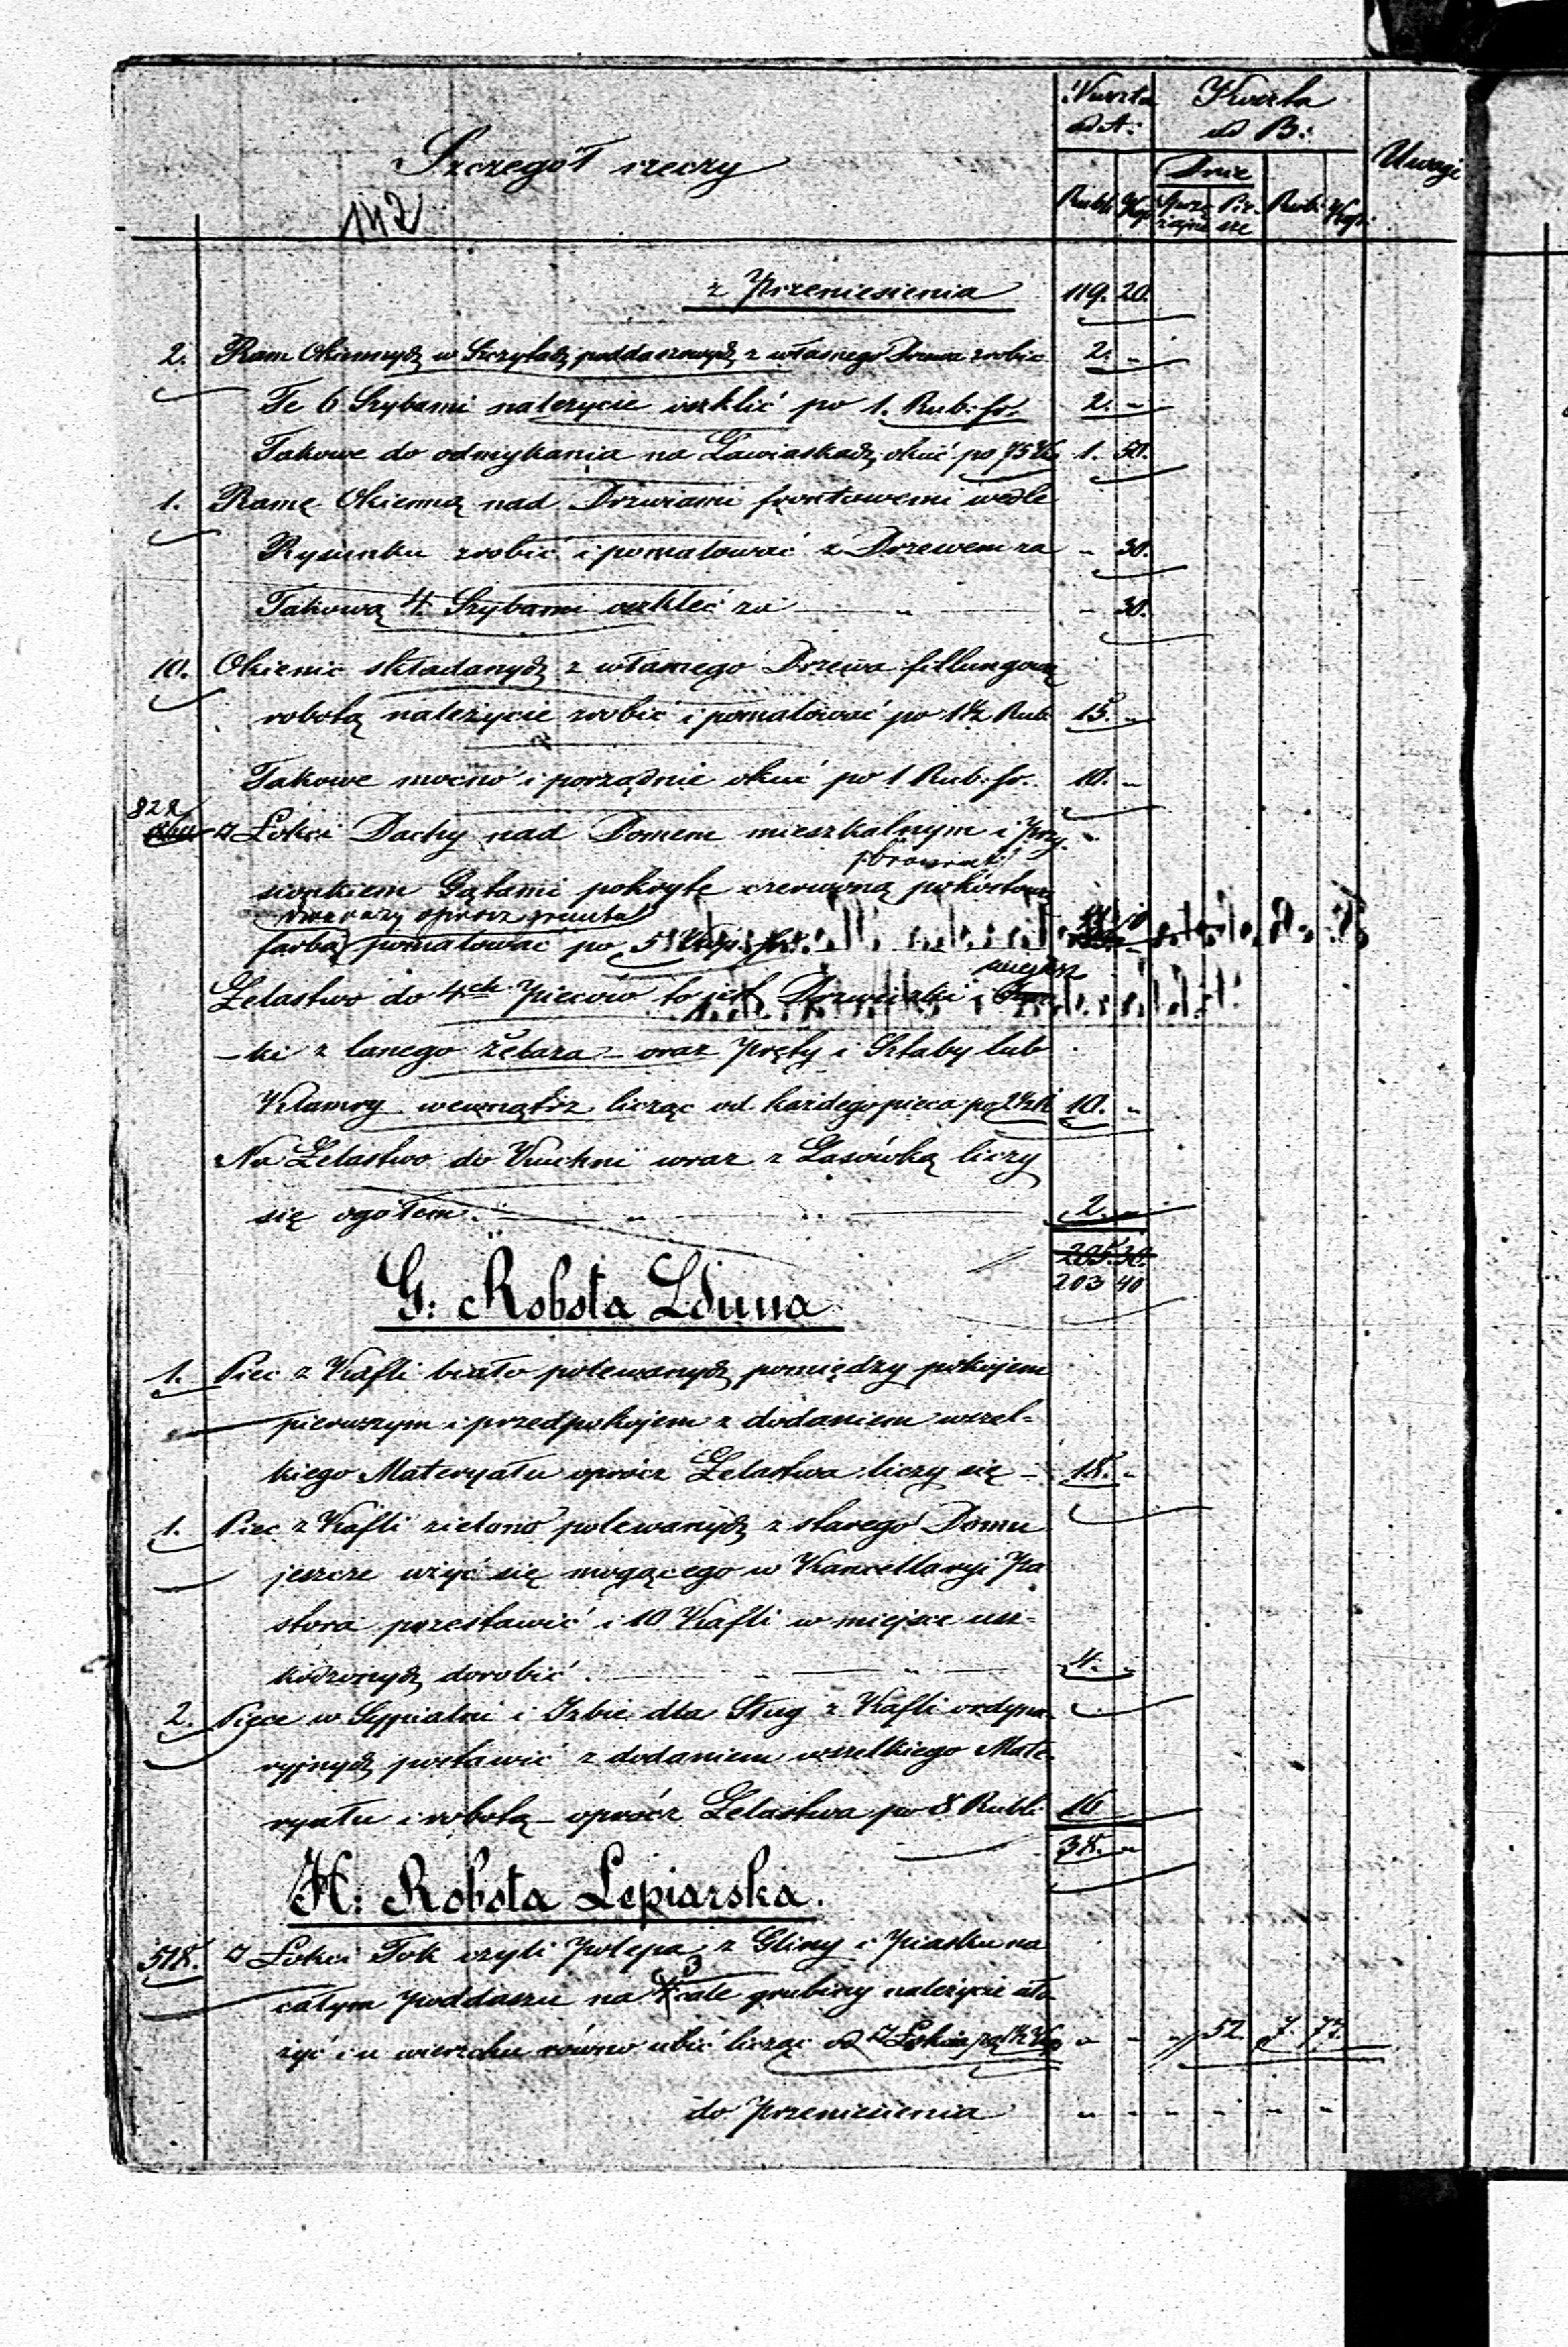 Szczegół rzeczy
142
Kwota ad A:
Kwota ad B:
Uwagi
Dnie
Rubli Kop Sprzężajne Piesze Rub: Kop:
z Przeniesienia 119. 20.
2. Ram Okiennych w Szczytach poddaszowych z własnego Drzewa zrobić 2. „
Te 6 Szybami należycie oszklić po 1. Rub: sr. 2. „
Takowe do odmykania na Zawiaskach okuć po 75 K. 1. 50.
1. Ramę Okienną nad Drzwiami frontowemi wedle
Rysunku zrobić i pomalować z Drzewem za „ 30.
Takową 4. Szybami oszkleć za — „ — „ 30.
10. Okienic składanych z własnego Drzewa fillungową
robotą należycie zrobić i pomalować po 1½ Rub. 15. „
Takowe mocno i porządnie okuć po 1 Rub: sr. 10. „
828 □ Łokci Dachy nad Domem mieszkalnym i Przy-
sionkiem Gątami pokryte czerwoną pokostową
dwa razy oprócz gruntu
farbą pomalować po 5 Kop. sr.
Żelastwo do 4ch Pieców to jest Drzwiczki i
-ki z lanego żelaza - oraz Pręty i Sztaby lub
Klamry wewnątrz licząc od każdego pieca po 2½ R 10. „
Na Żelastwo do Kuchni wraz z Zasówką liczy
się ogółem. — „ — „ — 2. „
205. 30.
203 40
G: Robota Zduna
1. Piec z Kafli biało polewanych pomiędzy pokojem
pierwszym i przedpokojem z dodaniem wszel-
kiego Materyału oprócz Żelastwa liczy się - 18. „
1. Piec z Kafli zielono polewanych z starego Domu
jeszcze użyć się mogącego w Kancellaryi Pa
stora przestawić i 10 Kafli w miejsce usz-
kodzonych dorobić. — „ — „ — 4. „
2. Piece w Sypialni i Izbie dla Sług z Kafli ordyna-
ryjnych postawić z dodaniem wszelkiego Mate-
ryału i robotą - oprócz Żelastwa po 8 Rubli 16
38. „
H: Robota Lepiarska.
518. □ Łokci Tok czyli Polepa z Gliny i Piasku na
całym Poddaszu na 3 cale grubizny należycie uło
żyć i u wierzchu równo ubić licząc od □ Łokcia po 1½ Kop „ „ „ 52. 7. 77.
do Przeniesienia „ „ „ „ „ „